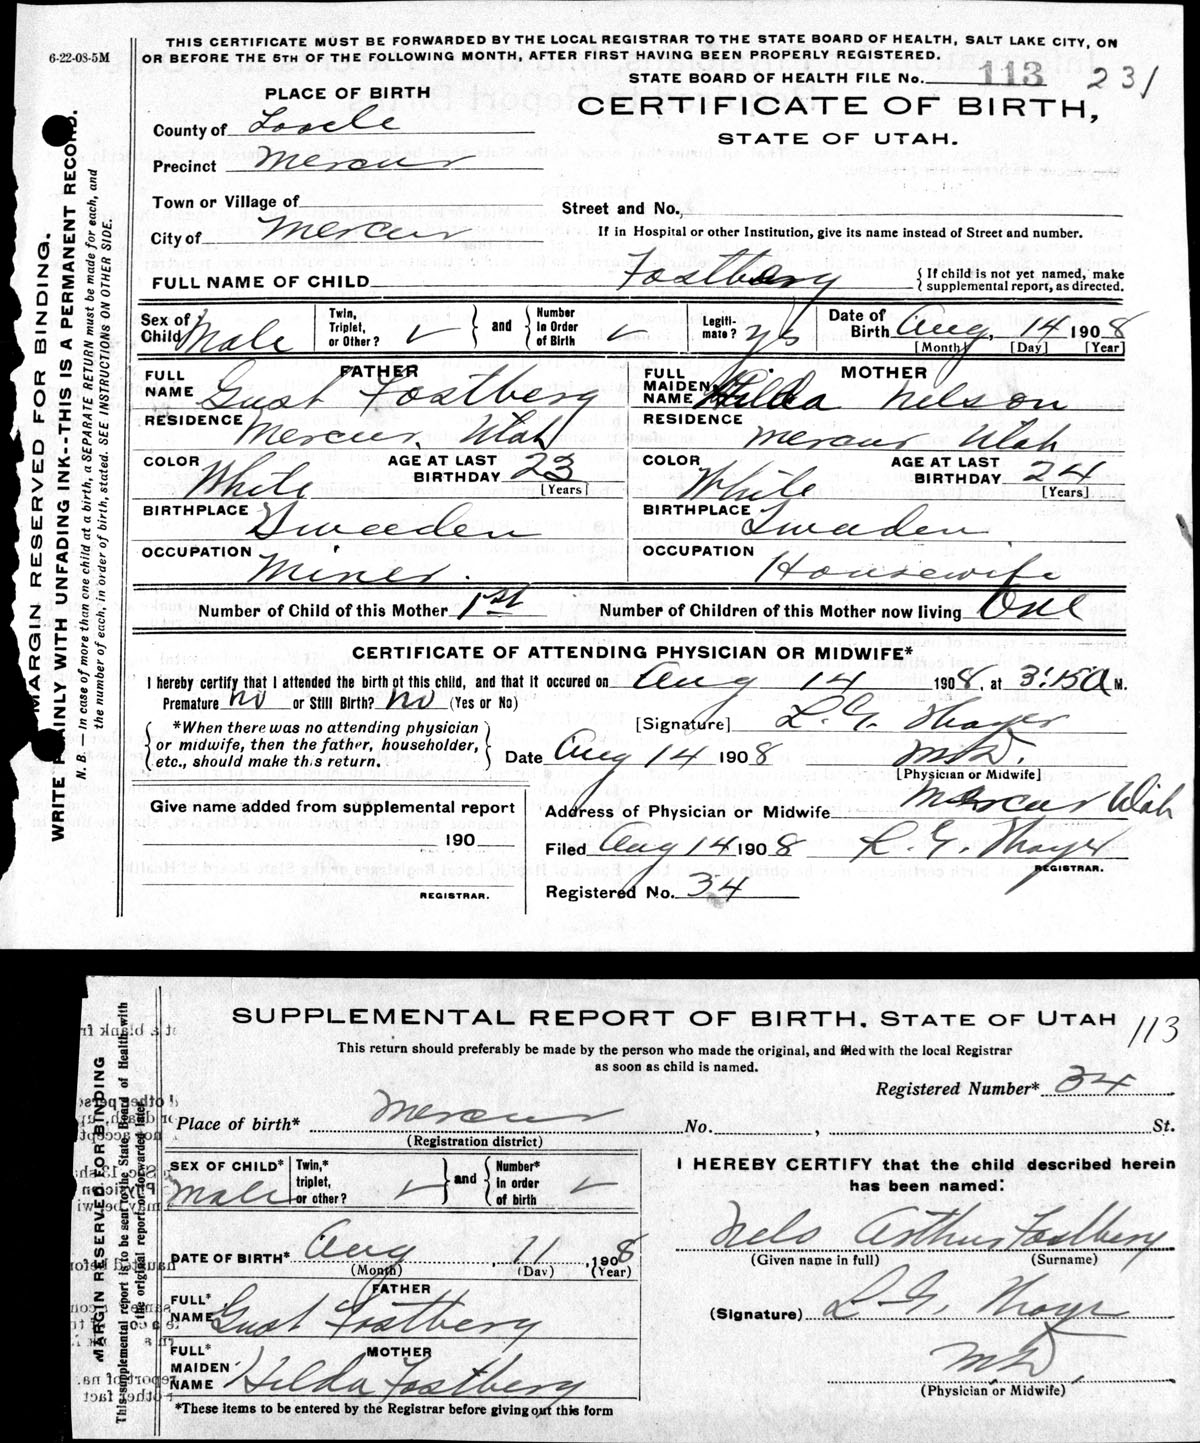 6-22-08-5M
THIS CERTIFICATE MUST BE FORWARDED BY THE LOCAL REGISTRAR TO THE STATE BOARD OF HEALTH, SALT LAKE CITY, ON
OR BEFORE THE 5TH OF THE FOLLOWING MONTH, AFTER FIRST HAVING BEEN PROPERLY REGISTERED.
STATE BOARD OF HEALTH FILE No. 113 231
PLACE OF BIRTH
CERTIFICATE OF BIRTH,
STATE OF UTAH.
County of Tooele
Precinct Mercur
Town or Village of
Street and No.,
City of Mercur
If in Hospital or other Institution, give its name instead of Street and number.
FULL NAME OF CHILD Fostberg { If child is not yet named, make supplemental report, as directed.
Sex of Child Male Twin, Triplet, or Other? ✓ } and { Number in Order of Birth ✓ Legiti-mate? yes Date of Birth Aug. 14 1908
[Month] [Day] [Year]
FATHER
FULL NAME Gust Fostberg
MOTHER
FULL MAIDEN NAME Hilda Nelson
RESIDENCE Mercur, Utah
RESIDENCE Mercur Utah
COLOR White AGE AT LAST BIRTHDAY 23 [Years]
COLOR White AGE AT LAST BIRTHDAY 24 [Years]
BIRTHPLACE Sweeden
BIRTHPLACE Sweden
OCCUPATION Miner.
OCCUPATION Housewife
Number of Child of this Mother 1st Number of Children of this Mother now living One
CERTIFICATE OF ATTENDING PHYSICIAN OR MIDWIFE*
I hereby certify that I attended the birth of this child, and that it occured on Aug 14 1908. at 3:15 A M.
Premature no or Still Birth? no (Yes or No)
[Signature] L. G. Thayer
*When there was no attending physician
or midwife, then the father, householder,
etc., should make this return.
Date Aug 14 1908 M.D.
[Physician or Midwife]
Give name added from supplemental report
190
REGISTRAR.
Address of Physician or Midwife Mercur Utah
Filed Aug 14 1908 L. G. Thayer
REGISTRAR.
Registered No. 34
MARGIN RESERVED FOR BINDING.
WRITE PLAINLY WITH UNFADING INK--THIS IS A PERMANENT RECORD.
N. B.—In case of more than one child at a birth, a SEPARATE RETURN must be made for each, and
the number of each, in order of birth, stated. SEE INSTRUCTIONS ON OTHER SIDE.
SUPPLEMENTAL REPORT OF BIRTH, STATE OF UTAH 113
This return should preferably be made by the person who made the original, and filed with the local Registrar
as soon as child is named.
Registered Number* 34
Place of birth* Mercur No. , St.
(Registration district)
SEX OF CHILD* Male Twin,* triplet, or other? ✓ } and { Number* in order of birth ✓
DATE OF BIRTH* Aug , 11 , 1908
(Month) (Day) (Year)
FATHER
FULL* NAME Gust Fostberg
MOTHER
FULL* MAIDEN NAME Hilda Fostberg
*These items to be entered by the Registrar before giving out this form
I HEREBY CERTIFY that the child described herein
has been named:
Nels Arthur Fostberg
(Given name in full) (Surname)
(Signature) L. G. Thayer
M.D.
(Physician or Midwife)
MARGIN RESERVED FOR BINDING
This supplemental report is to be sent to the State Board of Health with
the original report or forwarded later.